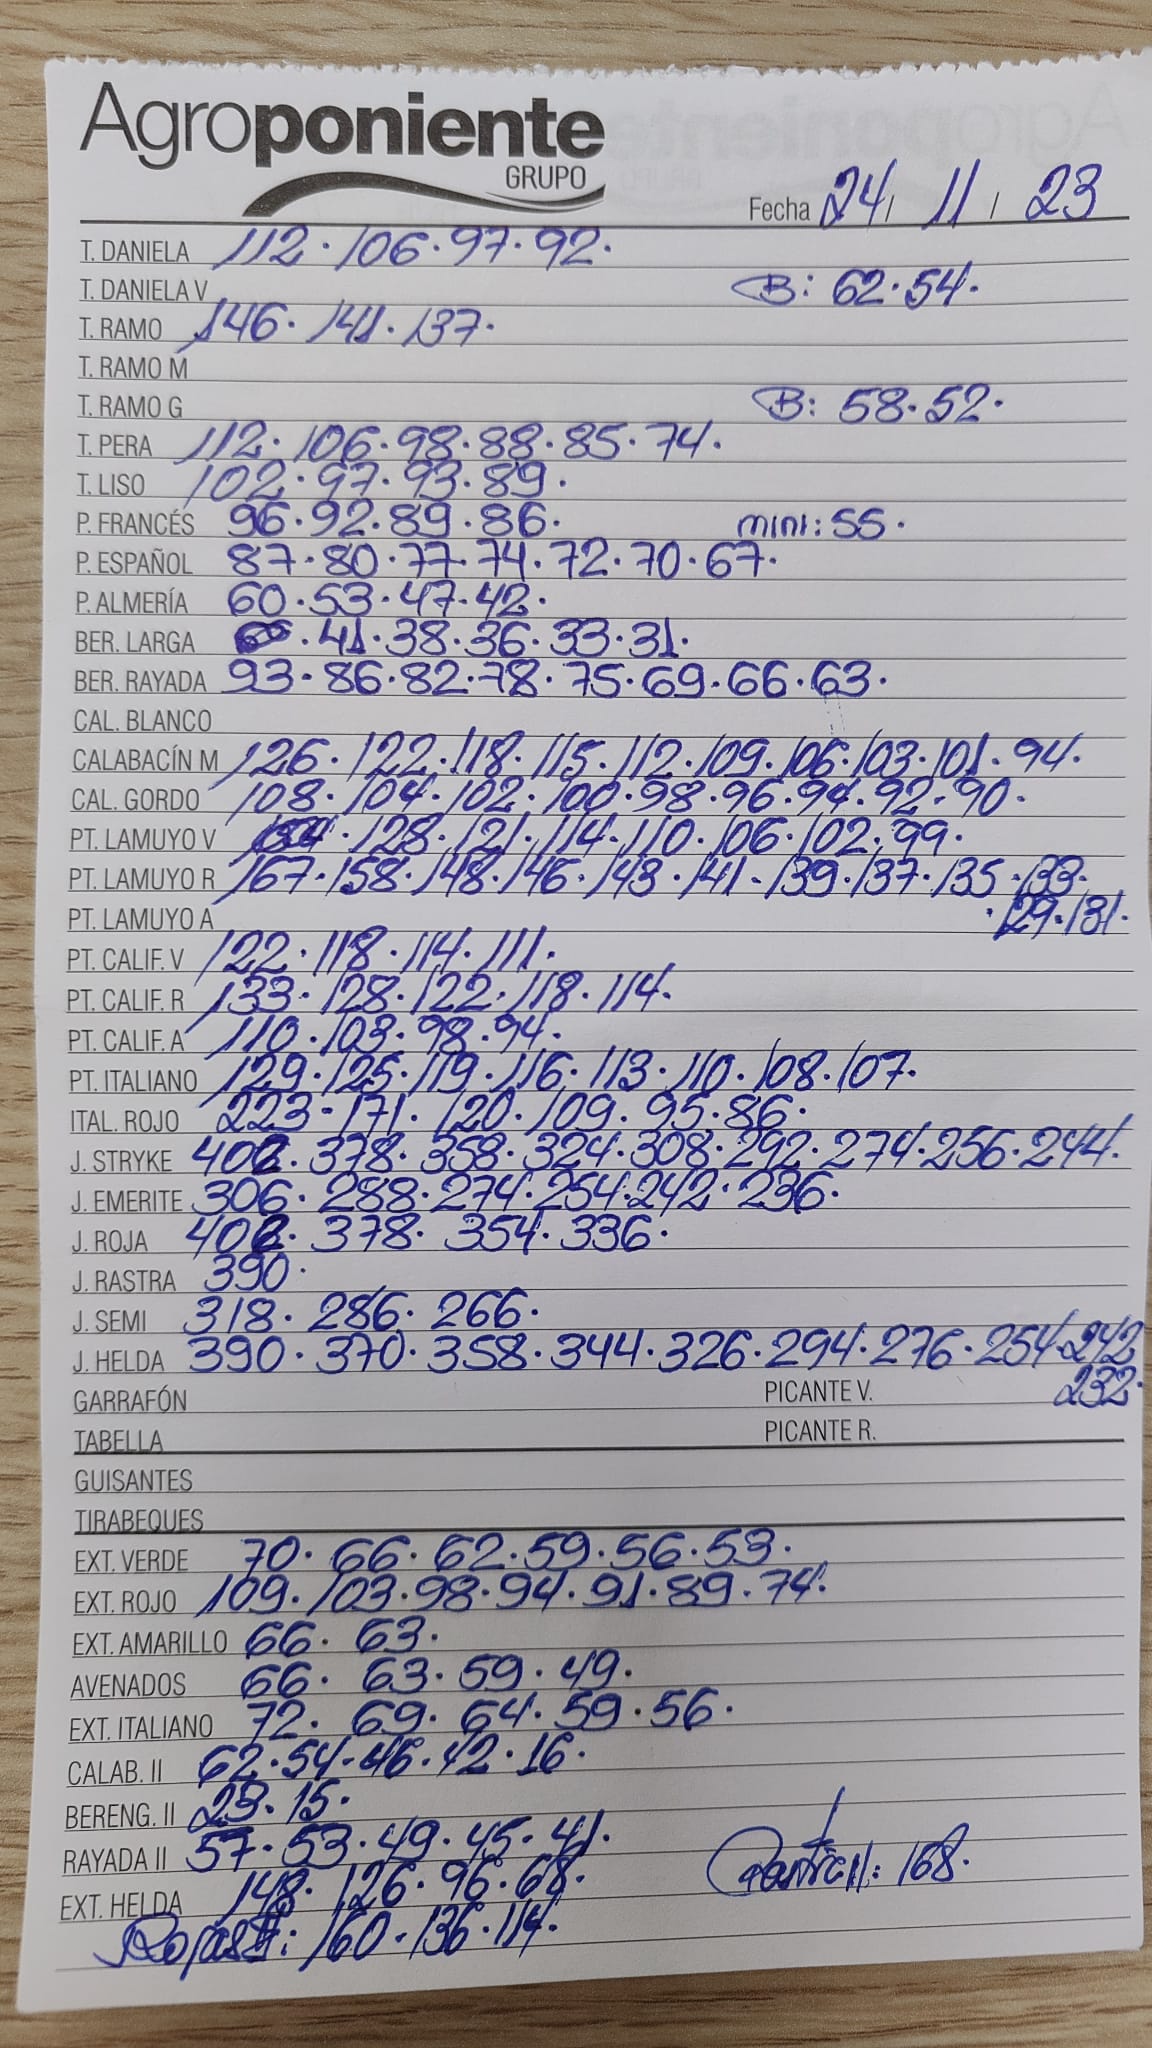 Agroponiente
GRUPO
Fecha 24 / 11 / 23
T. DANIELA 112 · 106 · 97 · 92 ·
T. DANIELA V B: 62 · 54 ·
T. RAMO 146 · 141 · 137 ·
T. RAMO M
T. RAMO G B: 58 · 52 ·
T. PERA 112 · 106 · 98 · 88 · 85 · 74 ·
T. LISO 102 · 97 · 93 · 89 ·
P. FRANCÉS 96 · 92 · 89 · 86 · mini: 55 ·
P. ESPAÑOL 87 · 80 · 77 · 74 · 72 · 70 · 67 ·
P. ALMERÍA 60 · 53 · 47 · 42 ·
BER. LARGA · 41 · 38 · 36 · 33 · 31 ·
BER. RAYADA 93 · 86 · 82 · 78 · 75 · 69 · 66 · 63 ·
CAL. BLANCO
CALABACÍN M 126 · 122 · 118 · 115 · 112 · 109 · 106 · 103 · 101 · 94 ·
CAL. GORDO 108 · 104 · 102 · 100 · 98 · 96 · 94 · 92 · 90 ·
PT. LAMUYO V · 128 · 121 · 114 · 110 · 106 · 102 · 99 ·
PT. LAMUYO R 167 · 158 · 148 · 146 · 143 · 141 · 139 · 137 · 135 · 133 ·
PT. LAMUYO A · 129 · 131 ·
PT. CALIF. V 122 · 118 · 114 · 111 ·
PT. CALIF. R 133 · 128 · 122 · 118 · 114 ·
PT. CALIF. A 110 · 103 · 98 · 94 ·
PT. ITALIANO 129 · 125 · 119 · 116 · 113 · 110 · 108 · 107 ·
ITAL. ROJO 223 · 171 · 120 · 109 · 95 · 86 ·
J. STRYKE 402 · 378 · 358 · 324 · 308 · 292 · 274 · 256 · 244 ·
J. EMERITE 306 · 288 · 274 · 254 · 242 · 236 ·
J. ROJA 402 · 378 · 354 · 336 ·
J. RASTRA 390 ·
J. SEMI 318 · 286 · 266 ·
J. HELDA 390 · 370 · 358 · 344 · 326 · 294 · 276 · 254 · 242
GARRAFÓN PICANTE V. 232 ·
TABELLA PICANTE R.
GUISANTES
TIRABEQUES
EXT. VERDE 70 · 66 · 62 · 59 · 56 · 53 ·
EXT. ROJO 109 · 103 · 98 · 94 · 91 · 89 · 74 ·
EXT. AMARILLO 66 · 63 ·
AVENADOS 66 · 63 · 59 · 49 ·
EXT. ITALIANO 72 · 69 · 64 · 59 · 56 ·
CALAB. II 62 · 54 · 46 · 42 · 16 ·
BERENG. II 23 · 15 ·
RAYADA II 57 · 53 · 49 · 45 · 41 ·
EXT. HELDA 148 · 126 · 96 · 68 · : 168 ·
: 160 · 136 · 114 ·